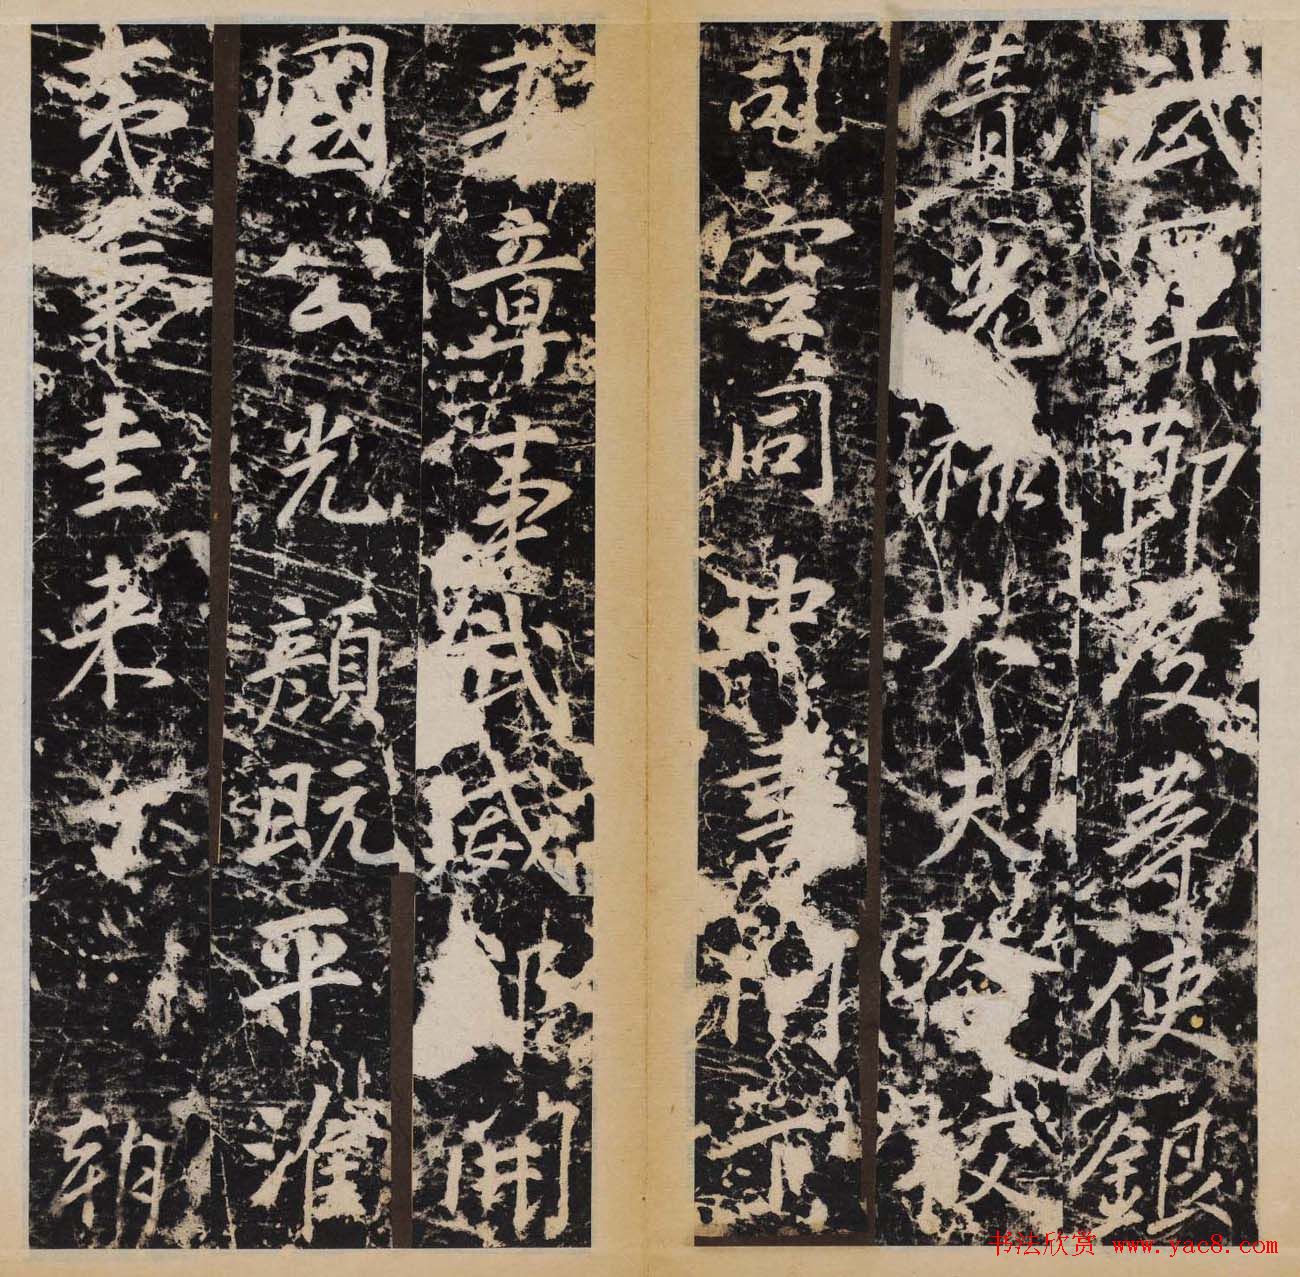 武軍節度等使銀
青光祿大夫檢校
司空同中書門下
平章事武威郡開
國公光顏既平淮
夷秉圭来
朝
书法欣赏 www.yac8.com